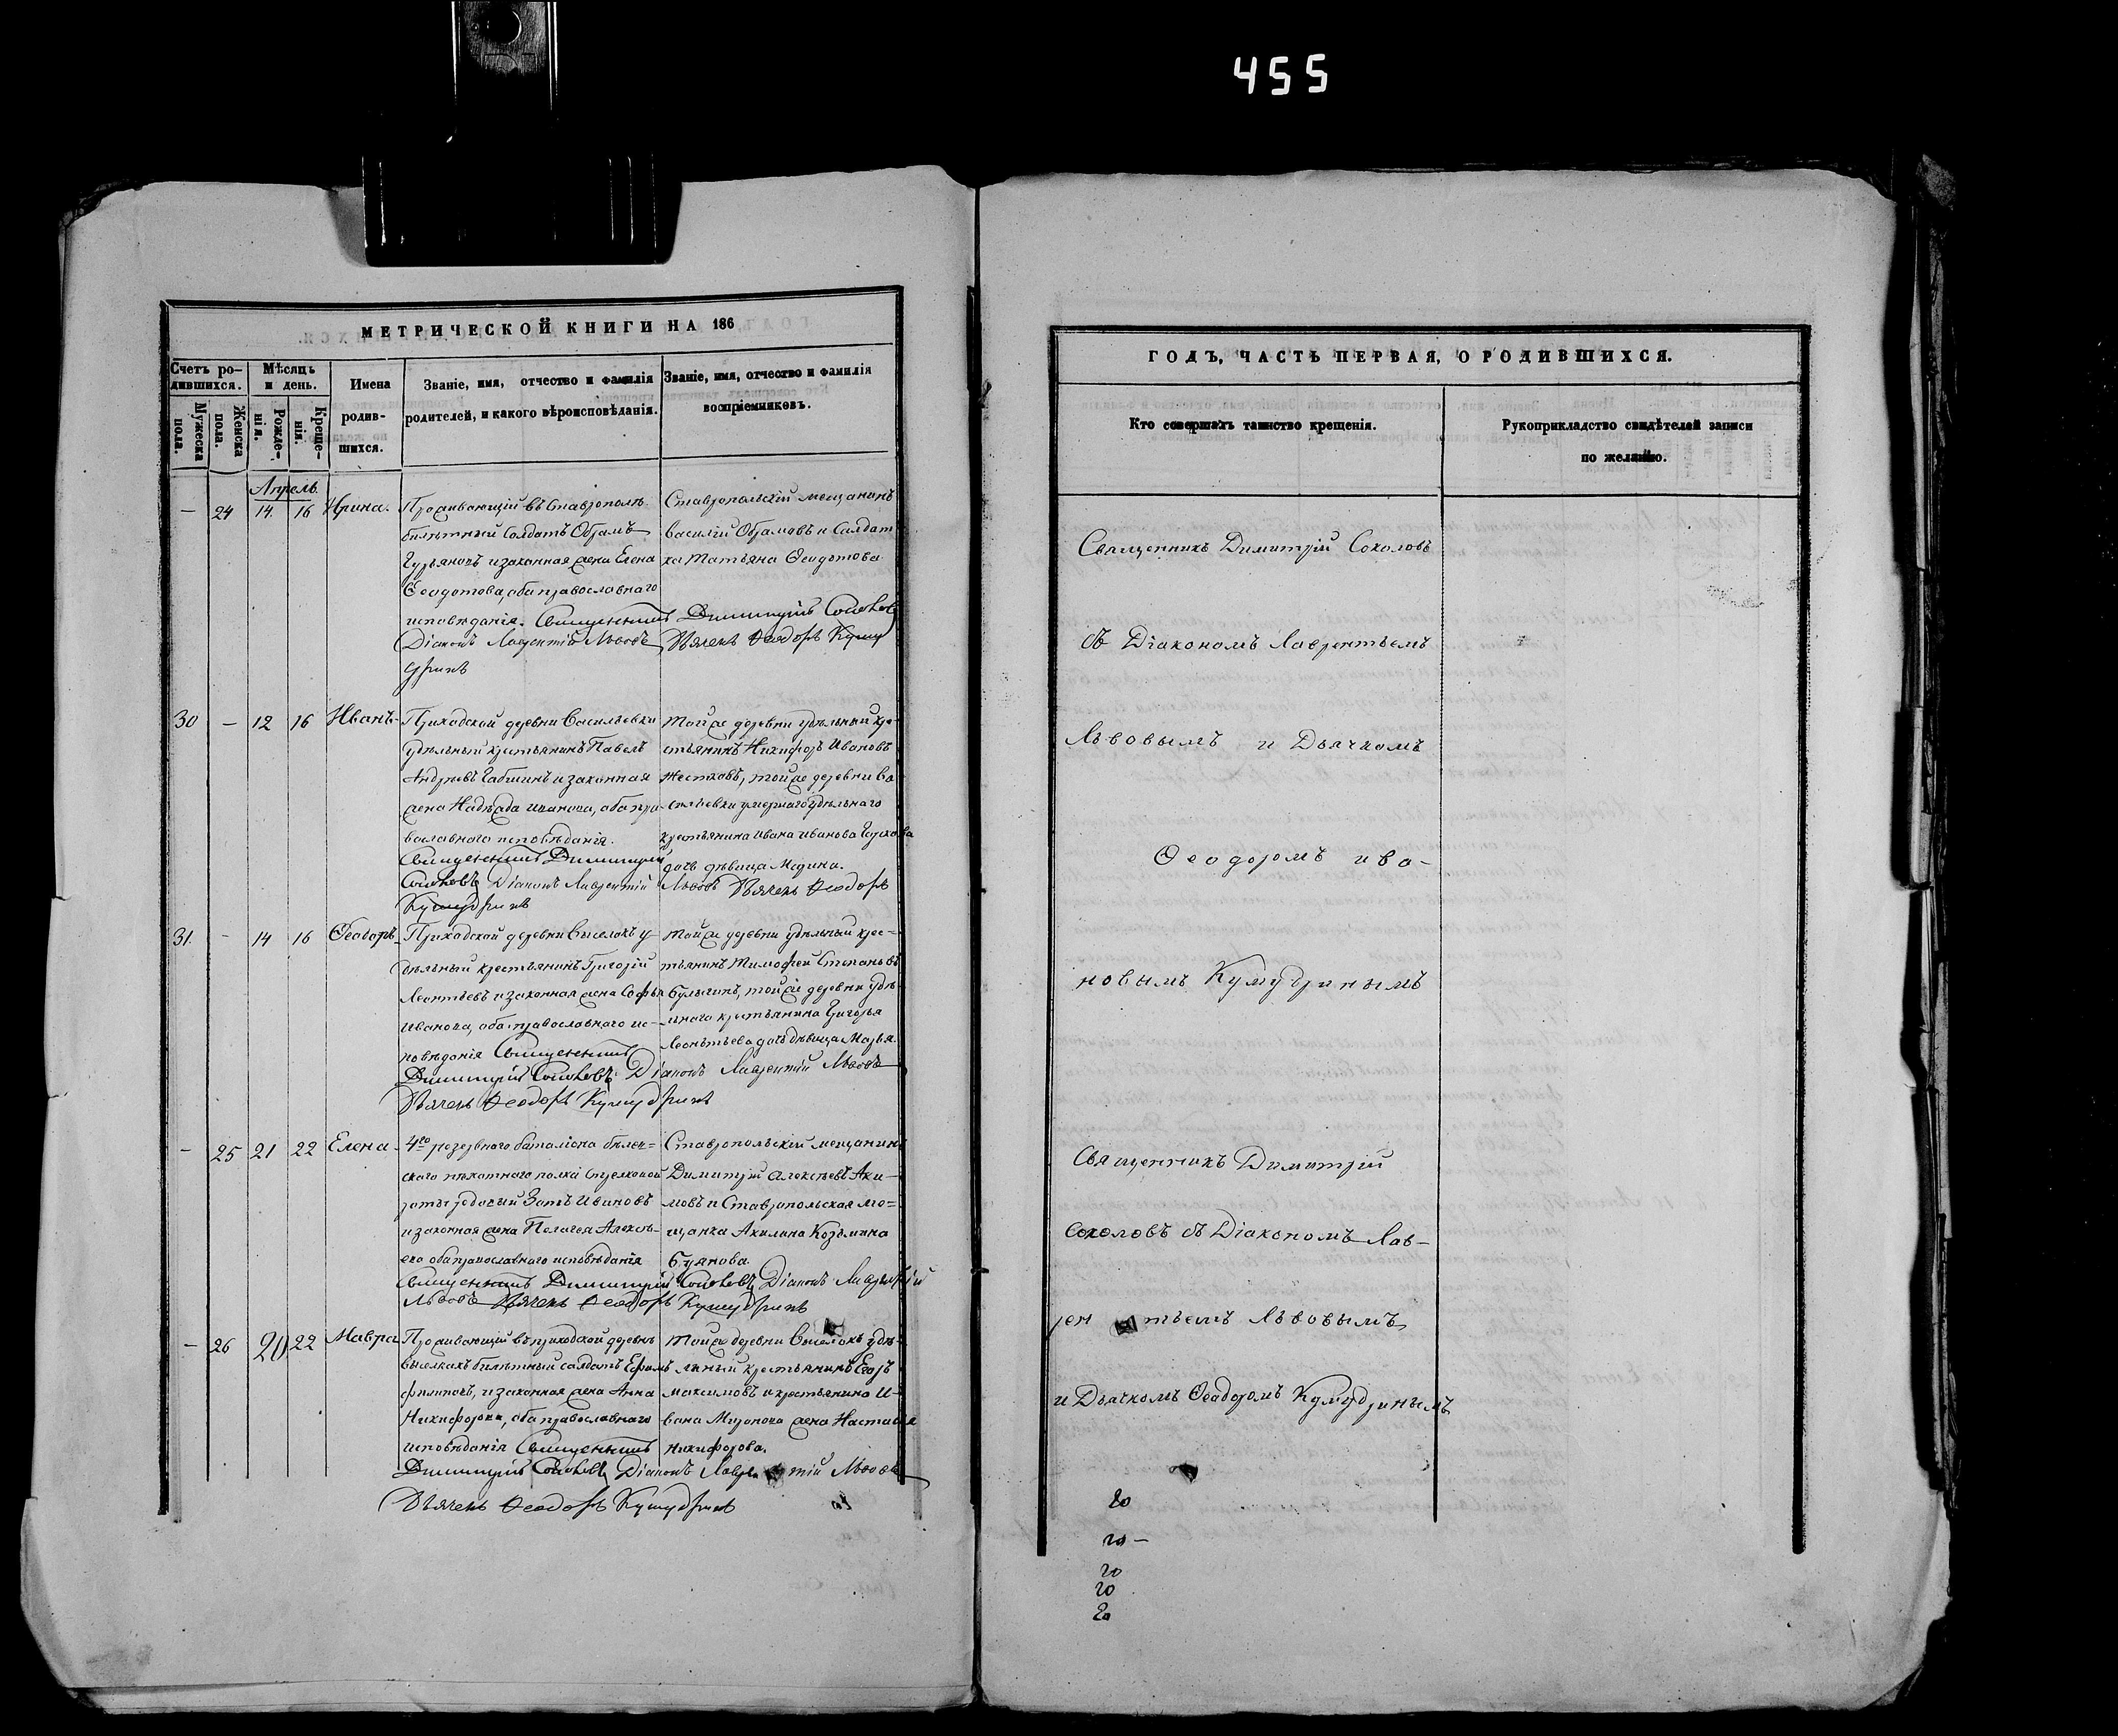 455
МЕТРИЧЕСКОЙ КНИГИ НА 186
Счетъ ро-
дившихся.
Мужеска
пола.
Женска
пола.
Мѣсяцъ
и день.
Рожде-
нія.
Креще-
нія.
Имена
родив-
шихся.
Званіе, имя, отчество и фамилія
родителей, и какого вѣроисповѣданія.
Званіе, имя, отчество и фамилія
воспріемниковъ.
Апрель.
— 24 14 16 Ирина.
Проживающій въ Ставрополѣ
билѣтный Солдатъ Обрамъ
Гурьяновъ и законная жена Елена
Феодотова, оба православнаго
исповѣданія. Священникъ Димитрій Соколовъ
Діаконъ Лаврентій Львовъ Дьячекъ Феодоръ Куму
дринъ
Ставропольскій мещанинъ
Василій Обрамовъ и Солдат
ка Татьяна Феодотова
30 — 12 16 Иванъ
Приходской деревни Васильевки
удѣльный крестьянинъ Павелъ
Андреевъ и законная
жена Надежда Иванова, оба пра-
вославнаго исповѣданія.
Священникъ Димитрій
Соколовъ Діаконъ Лаврентій Львовъ Дьячекъ Феодоръ
Кумудринъ
Той же деревни удѣльный кре-
стьянинъ Никифоръ Ивановъ
той же деревни Ва
сильевки умершаго удѣльнаго
крестьянина Ивана Иванова
дочь дѣвица
31. — 14 16 Феодоръ
Приходской деревни Выселокъ у-
дѣльный крестьянинъ Григорій
Леонтьевъ и законная жена Софья
Иванова, оба православнаго ис-
повѣданія Священникъ
Димитрій Соколовъ Діаконъ Лаврентій Львовъ
Дьячекъ Феодоръ Кумудринъ
Той же деревни удѣльный крес-
тьянинъ Тимофей Степановъ
Булыгинъ, той же деревни удѣ
льнаго крестьянина Григорья
Леонтьева дочь дѣвица Марья.
— 25 21 22 Елена
4го резервнаго баталіона
скаго пѣхотнаго полка Стрелковой
роты рядовый Ивановъ
и законная жена Пелагея Алексѣ-
ева оба православнаго исповѣданія
Священникъ Димитрій Соколовъ Діаконъ Лаврентій
Львовъ Дьячекъ Феодоръ Кумудринъ
Ставропольскій мещанинъ
Димитрій Алексѣевъ Аки-
мовъ и Ставропольская ме-
щанка Акилина Козьмина
Буянова
— 26 20 22 Мавра
Проживающій въ приходской деревнѣ
Выселкахъ билѣтный солдатъ Ефимъ
Филиповъ, и законная жена Анна
Никифорова, оба православнаго
исповѣданія Священникъ
Димитрій Соколовъ Діаконъ Лаврентій Львовъ
Дьячекъ Феодоръ Кумудринъ
Той же деревни Выселокъ удѣ
льный крестьянинъ Егоръ
Максимовъ и крестьянина И-
вана Миронова жена Настасья
Никифорова.
ГОДЪ, ЧАСТЬ ПЕРВАЯ, О РОДИВШИХСЯ.
Кто совершалъ таинство крещенія.
Рукоприкладство свидѣтелей записи
по желанію.
Священникъ Димитрій Соколовъ
съ Діакономъ Лаврентьемъ
Львовымъ и Дьячкомъ
Феодоромъ Ива-
новымъ Кумудринымъ
Священникъ Димитрій
Соколовъ съ Діакономъ Лав-
рентьемъ Львовымъ
и Дьячкомъ Феодоромъ Кумудринымъ
20
20 —
20
20
20